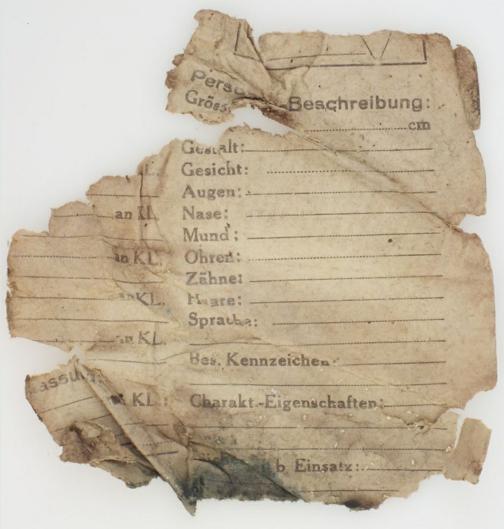 Beschreibung:
Gröss
cm
Gestalt:
KL. Gesicht:
Augen:
an KL. Nase:
Mund:
an KL. Ohren:
Zähne:
an KL. Haare:
Sprache:
an KL.
Bes. Kennzeichen
assung:
KL: Charakt.-Eigenschaften:
b. Einsatz: